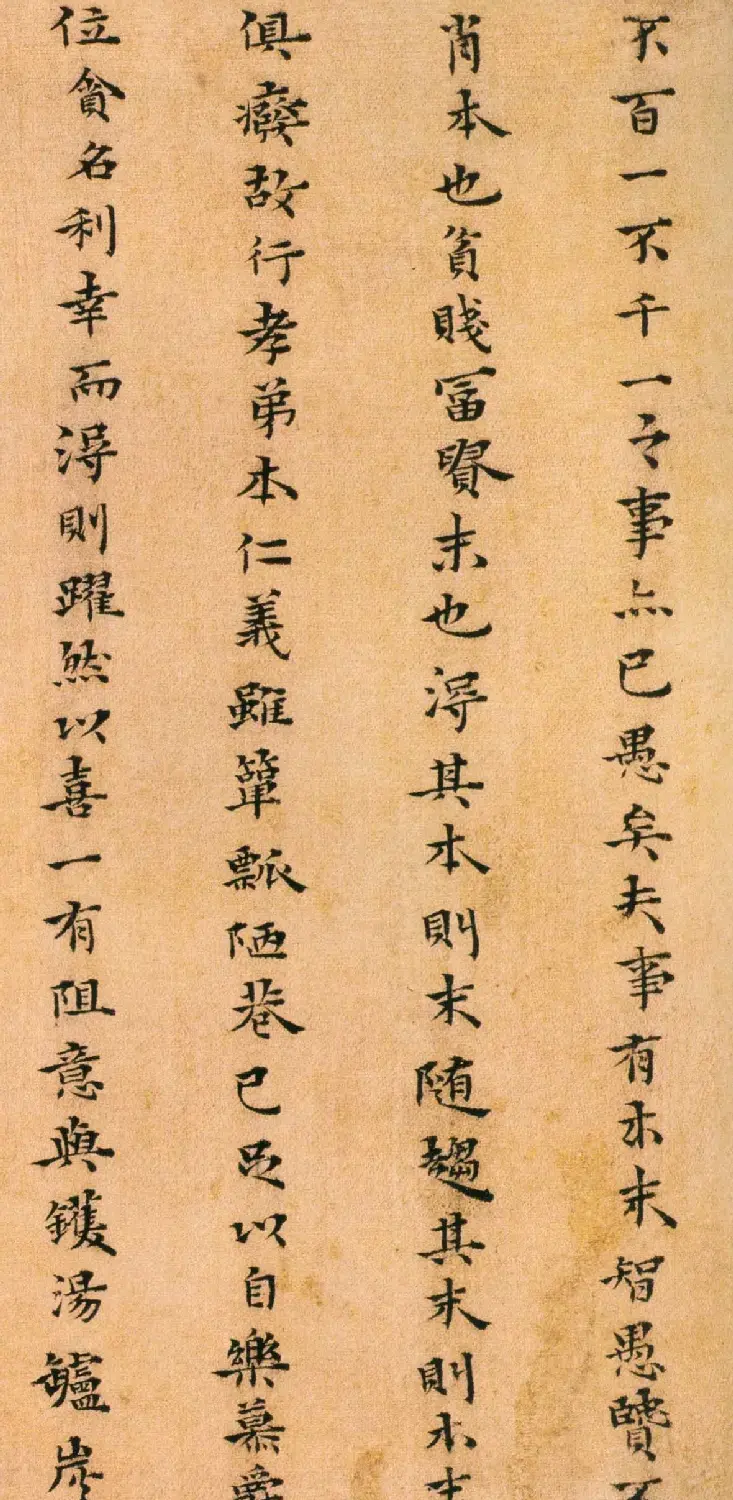 不百一不千一之事亦已愚矣夫事有本末智愚贒不
肖本也貧賤冨貴末也得其本則末随趨其末則本末
俱癈故行孝弟本仁義雖簞瓢陋巷已足以自樂慕爵
位貪名利幸而得則躍然以喜一有阻意與鑊湯鑪炭